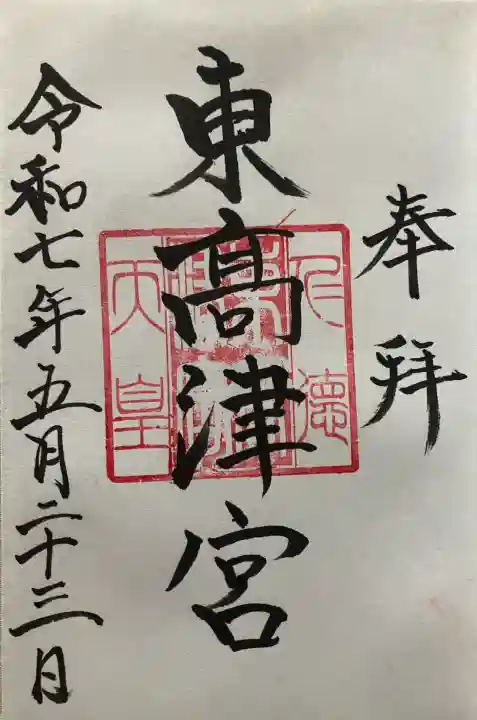 奉拜
東高津宮
仁徳
天皇
令和七年五月二十三日